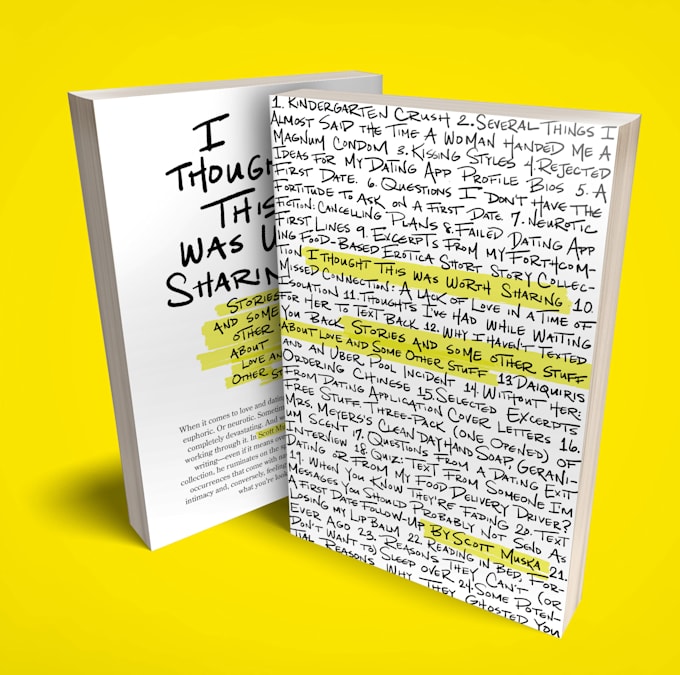 I
THOUG
THIS
WAS
SHARING
STORIES
AND SOME
OTHER
ABOUT
LOVE AN
OTHER S
When it comes to love and datin
euphoric. Or neurotic. Sometim
completely devastating. And w
working through it. In Scott Mu
writing—even if it means over
collection, he ruminates on the
occurrences that come with
intimacy and, conversely, feeling
what you're look
1. KINDERGARTEN CRUSH 2. SEVERAL THINGS I
ALMOST SAID THE TIME A WOMAN HANDED ME A
MAGNUM CONDOM 3. KISSING STYLES 4. REJECTED
IDEAS FOR MY DATING APP PROFILE BIOS 5. A
FIRST DATE. 6. QUESTIONS I DON'T HAVE THE
FORTITUDE TO ASK ON A FIRST DATE 7. NEUROTIC
FICTION: CANCELLING PLANS 8. FAILED DATING APP
FIRST LINES 9. EXCERPTS FROM MY FORTHCOM-
ING FOOD-BASED EROTICA SHORT STORY COLLEC-
TION I THOUGHT THIS WAS WORTH SHARING 10.
MISSED CONNECTION: A LACK OF LOVE IN A TIME OF
ISOLATION 11. THOUGHTS I'VE HAD WHILE WAITING
FOR HER TO TEXT BACK 12. WHY I HAVEN'T TEXTED
YOU BACK STORIES AND SOME OTHER STUFF
ABOUT LOVE AND SOME OTHER STUFF 13 DAIQUIRIS
AND AN UBER POOL INCIDENT 14. WITHOUT HER:
ORDERING CHINESE 15. SELECTED EXCERPTS
FROM DATING APPLICATION COVER LETTERS 16.
FREE STUFF: THREE-PACK (ONE OPENED) OF
MRS. MEYERS'S CLEAN DAY HAND SOAP, GERANI-
UM SCENT 17. QUESTIONS FROM A DATING EXIT
INTERVIEW 18. QUIZ: TEXT FROM SOMEONE I'M
DATING OR FROM MY FOOD DELIVERY DRIVER?
19. WHEN YOU KNOW THEY'RE FADING 20. TEXT
MESSAGES YOU SHOULD PROBABLY NOT SEND AS
A FIRST DATE FOLLOW-UP BY SCOTT MUSKA 21.
LOSING MY LIP BALM 22. READING IN BED, FOR-
EVER AGO 23. REASONS THEY CAN'T (OR
DON'T WANT TO) SLEEP OVER 24. SOME POTEN-
TIAL REASONS WHY THEY GHOSTED YOU